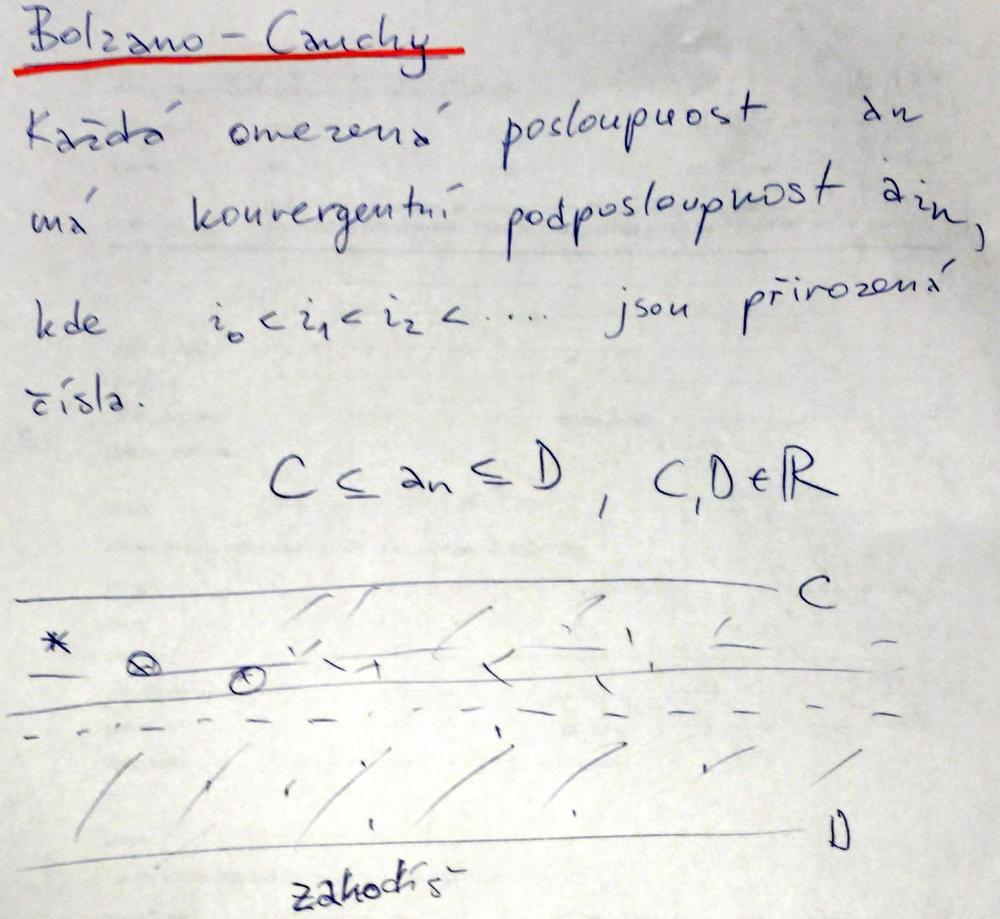 Bolzano - Cauchy
Každá omezená posloupnost an
má konvergentní podposloupnost ain,
kde i0 < i1 < i2 < .... jsou přirozená
čísla.
C ≤ an ≤ D, C,D ∈ ℝ
C
*
D
zahodíš